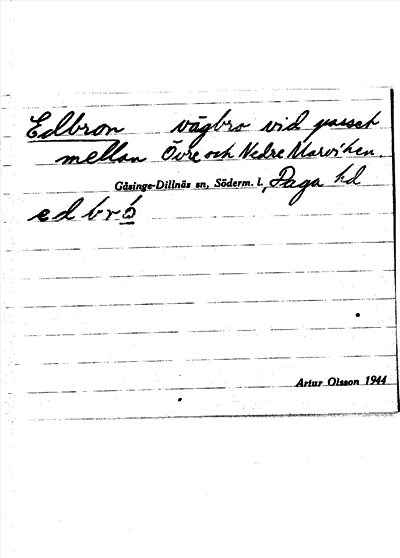 Edbron vägbro vid passet
mellan Övre och Nedre Marviken.
Gåsinge-Dillnäs sn, Söderm. l., Daga hd
edbrò
Artur Olsson 1944